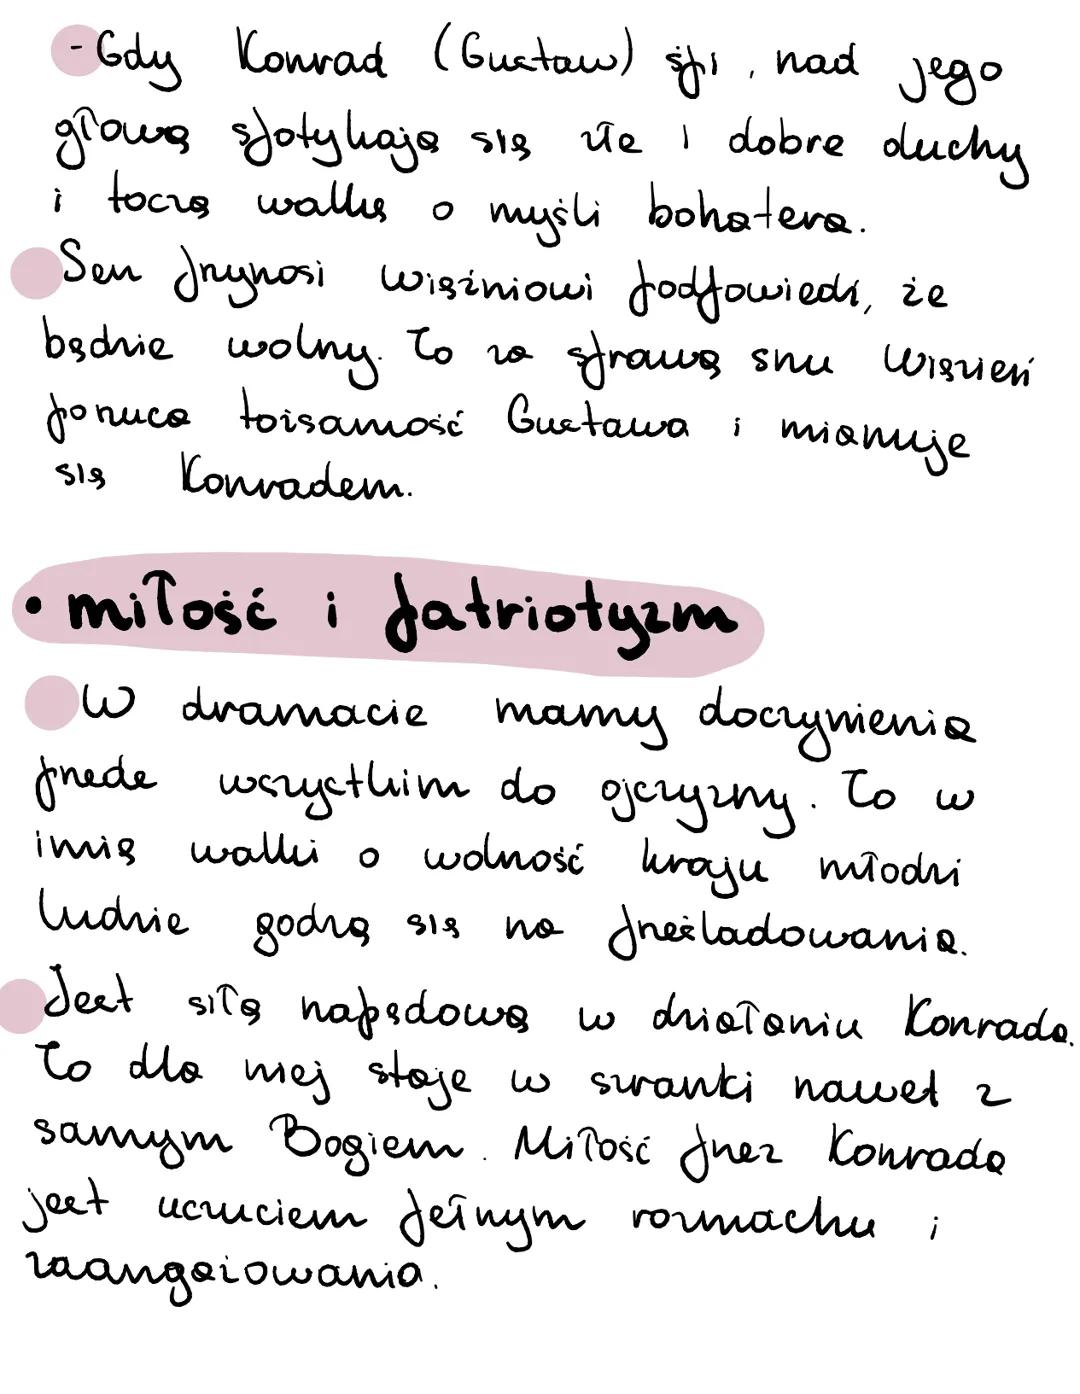 - Gdy Konrad (Gustaw) śpi, nad jego
głową spotykają się złe i dobre duchy
i toczą walkę o myśli bohatera.
Sen przynosi więźniowi podpowiedź, że
będzie wolny. To za sprawą snu Więzień
porzuca tożsamość Gustawa i mianuje
się Konradem.
• miłość i patriotyzm
W dramacie mamy doczynienia
przede wszystkim do ojczyzny. To w
imię walki o wolność kraju młodzi
ludzie godzą się na prześladowania.
Jest siłą napędową w działaniu Konrada.
To dla niej staje w szranki nawet z
samym Bogiem. Miłość przez Konrada
jest uczuciem pełnym rozmachu i
zaangażowania.